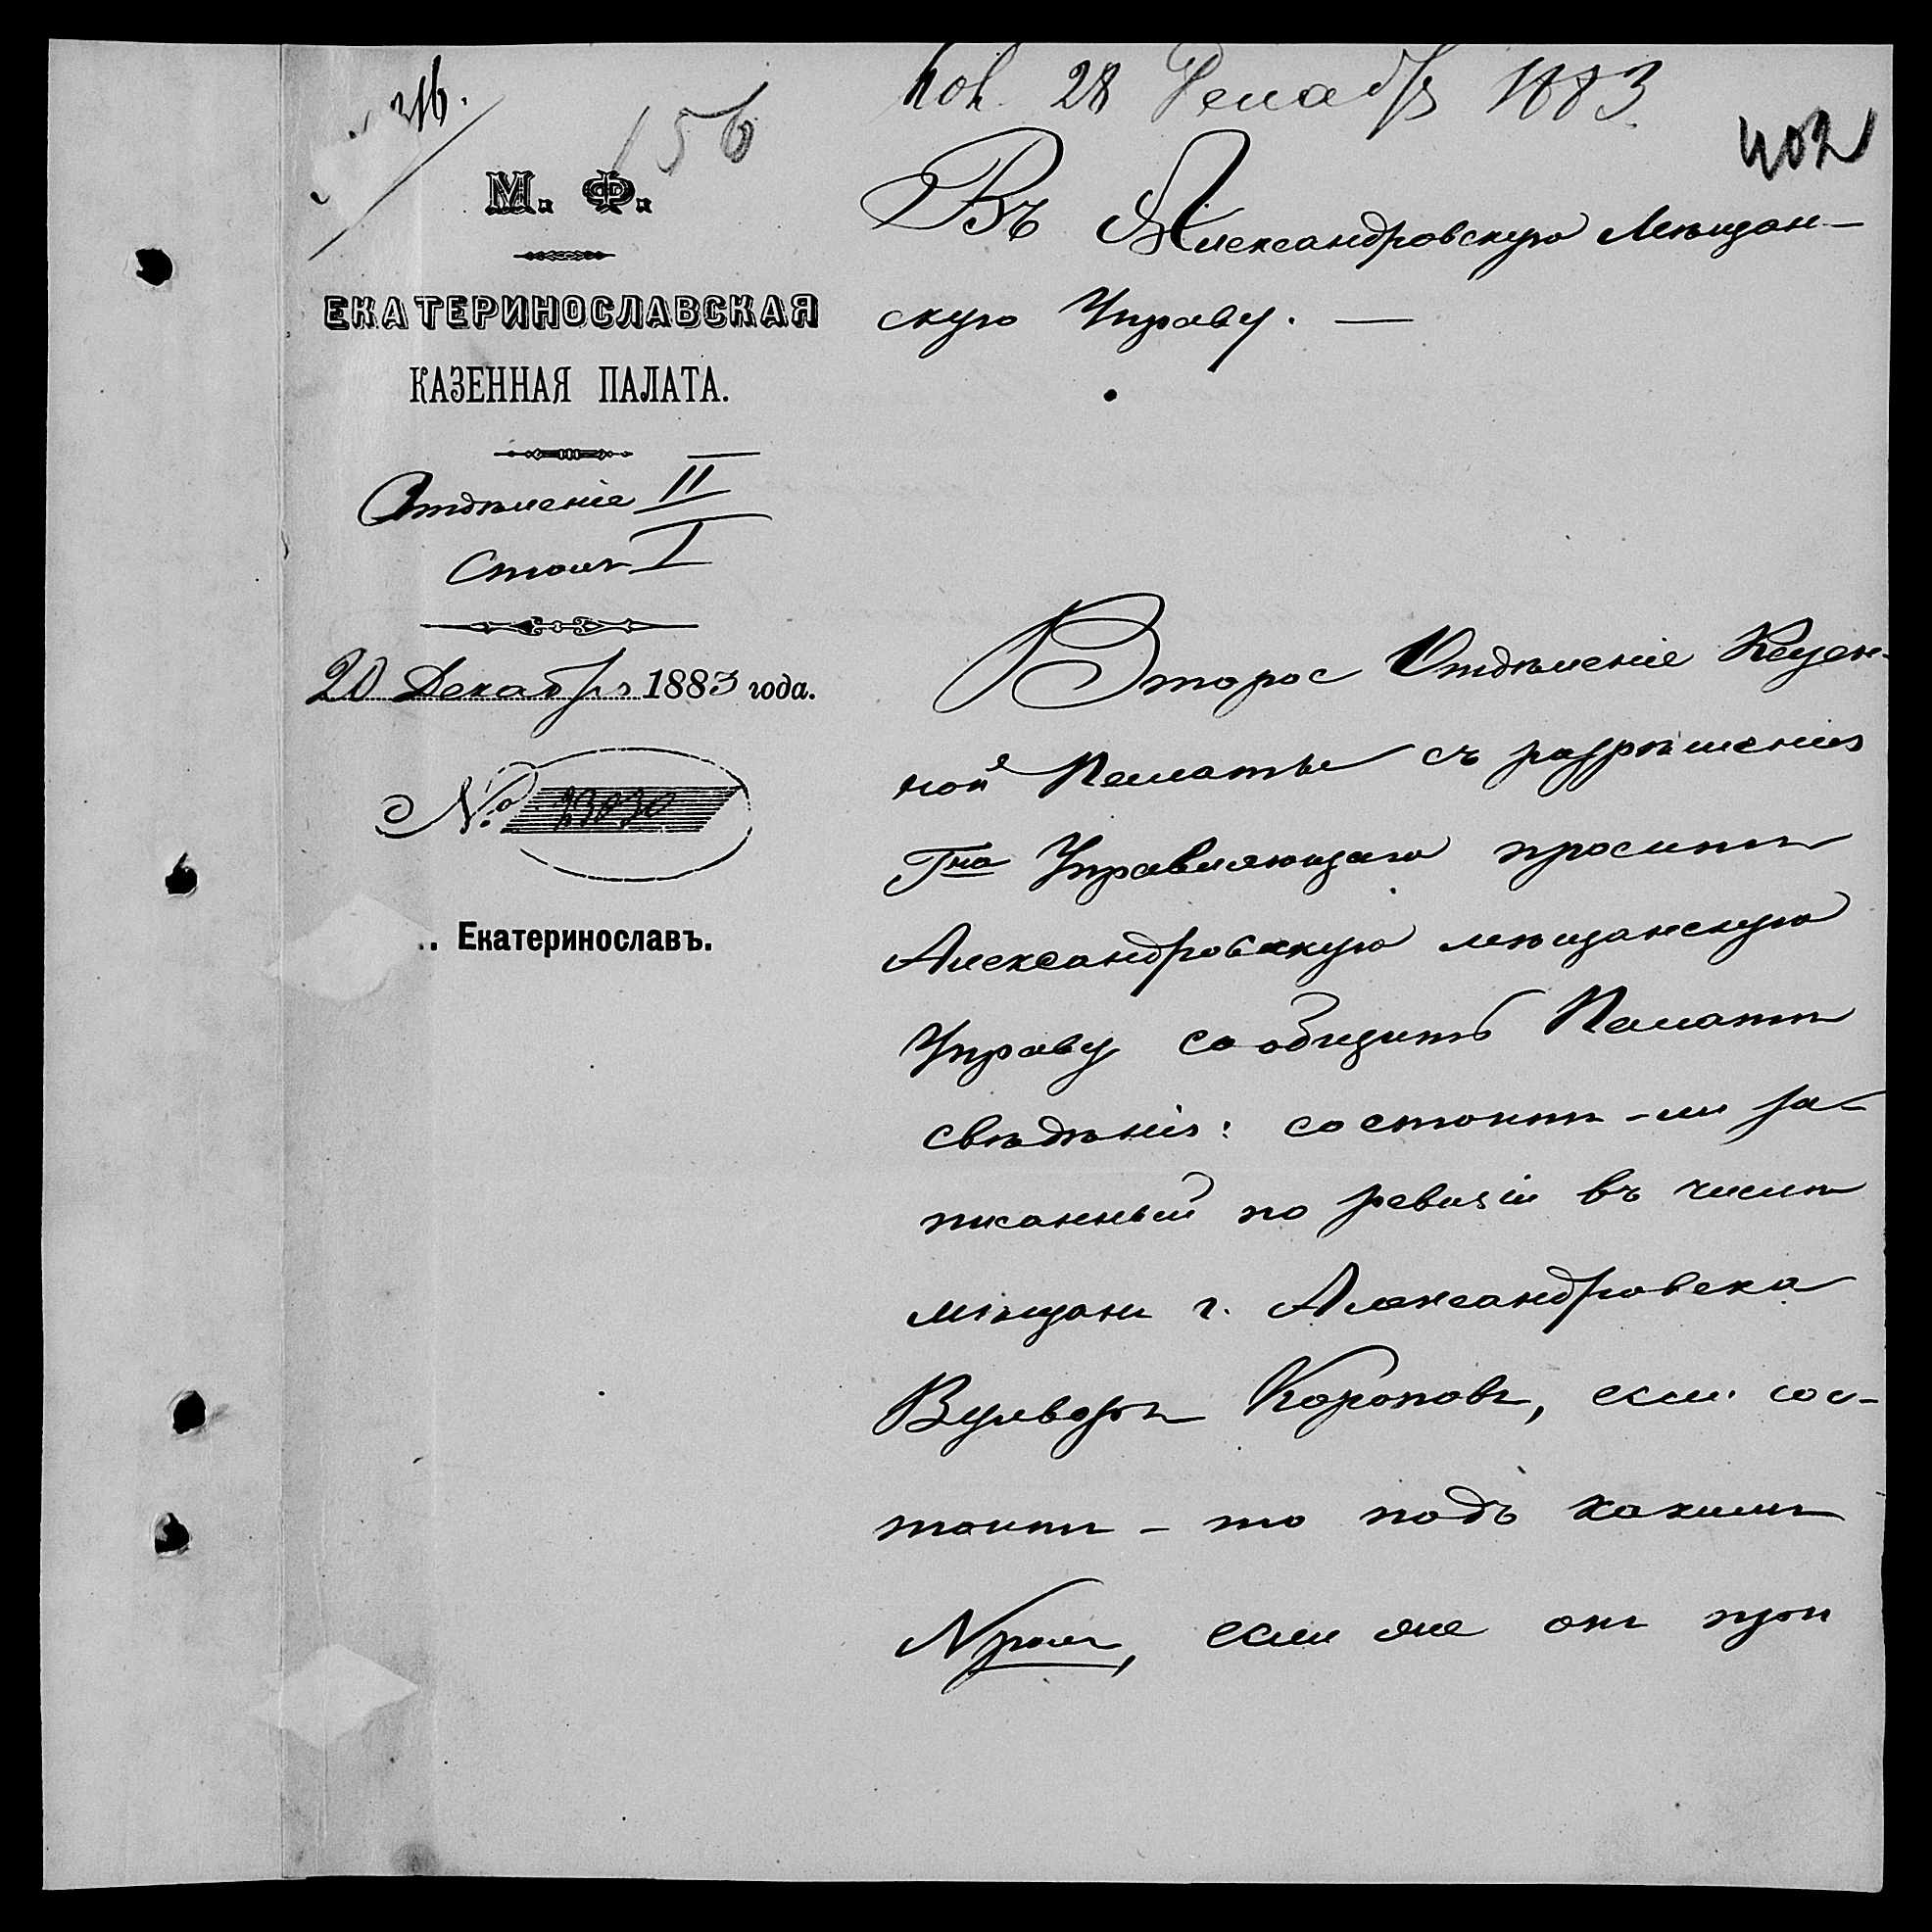 316.
156
Пол. 28 Декабря 1883.
402
М. Ф.
ЕКАТЕРИНОСЛАВСКАЯ
КАЗЕННАЯ ПАЛАТА.
Отдѣленіе II
Столъ I
20 Декабря 1883 года.
№ 23030
Екатеринославъ.
Въ Александровскую Мѣщан-
скую Управу. —
Второе Отдѣленіе Казен-
ной Палаты съ разрѣшенія
Гна Управляющаго проситъ
Александровскую мѣщанскую
Управу сообщить Палатѣ
свѣдѣнія: состоитъ-ли за-
писанный по ревизіи въ числѣ
мѣщанъ г. Александровска
Коропов, если сос-
тоитъ - то подъ какимъ
№ромъ, если же онъ при